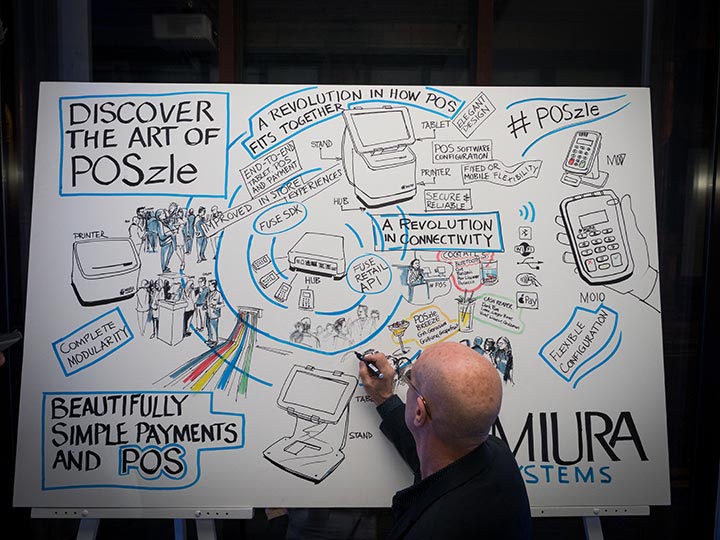 DISCOVER
THE ART OF
POSzle
A REVOLUTION IN HOW POS
FITS TOGETHER
ELEGANT
DESIGN
# POSzle
TABLET
STAND
POS SOFTWARE
CONFIGURATION
END-TO-END
TABLET, POS
AND PAYMENT
PRINTER
FIXED OR
MOBILE FLEXIBILITY
IMPROVED IN STORE EXPERIENCES
HUB
SECURE &
RELIABLE
FUSE SDK
A REVOLUTION
IN CONNECTIVITY
PRINTER
HUB
FUSE
RETAIL
API
COCKTAILS
#POS
Pay
M010
POSzle
BREEZE
COMPLETE
MODULARITY
FLEXIBLE
CONFIGURATION
BEAUTIFULLY
SIMPLE PAYMENTS
AND POS
STAND
MIURA
SYSTEMS